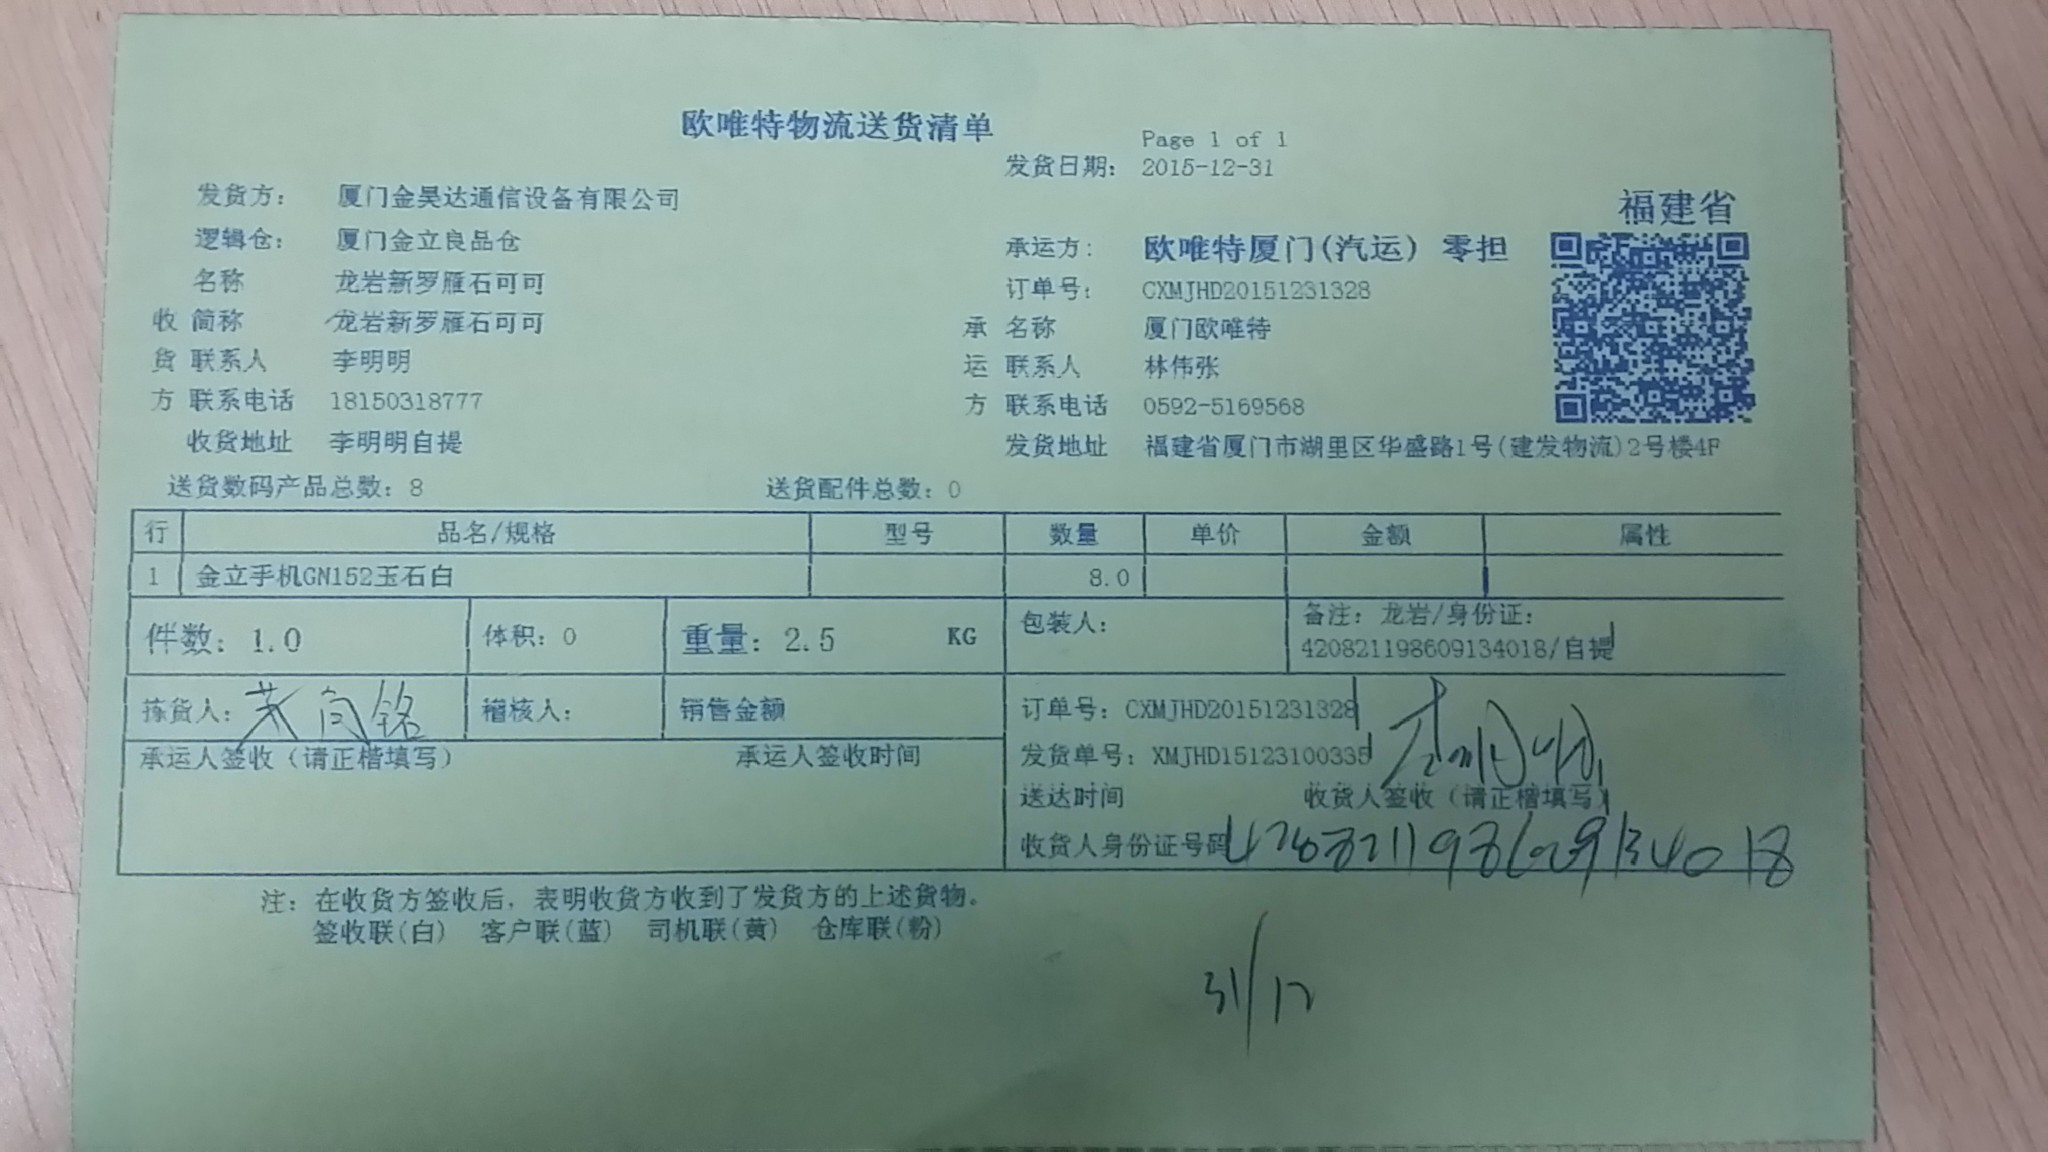 欧唯特物流送货清单
Page 1 of 1
发货日期： 2015-12-31
发货方： 厦门金昊达通信设备有限公司
福建省
逻辑仓： 厦门金立良品仓
承运方： 欧唯特厦门(汽运) 零担
名称 龙岩新罗雁石可可
订单号： CXMJHD20151231328
收 简称 龙岩新罗雁石可可
承 名称 厦门欧唯特
货 联系人 李明明
运 联系人 林伟张
方 联系电话 18150318777
方 联系电话 0592-5169568
收货地址 李明明自提
发货地址 福建省厦门市湖里区华盛路1号(建发物流)2号楼4F
送货数码产品总数：8 送货配件总数：0
行 品名/规格 型号 数量 单价 金额 属性
1 金立手机GN152玉石白 8.0
件数：1.0 体积：0 重量：2.5 KG 包装人：
备注：龙岩/身份证：
420821198609134018/自提
拣货人： 稽核人： 销售金额
订单号：CXMJHD20151231328
承运人签收（请正楷填写） 承运人签收时间
发货单号：XMJHD15123100335 李明明
送达时间 收货人签收（请正楷填写）
收货人身份证号码 420821198609134018
注：在收货方签收后，表明收货方收到了发货方的上述货物。
签收联(白) 客户联(蓝) 司机联(黄) 仓库联(粉)
31/12